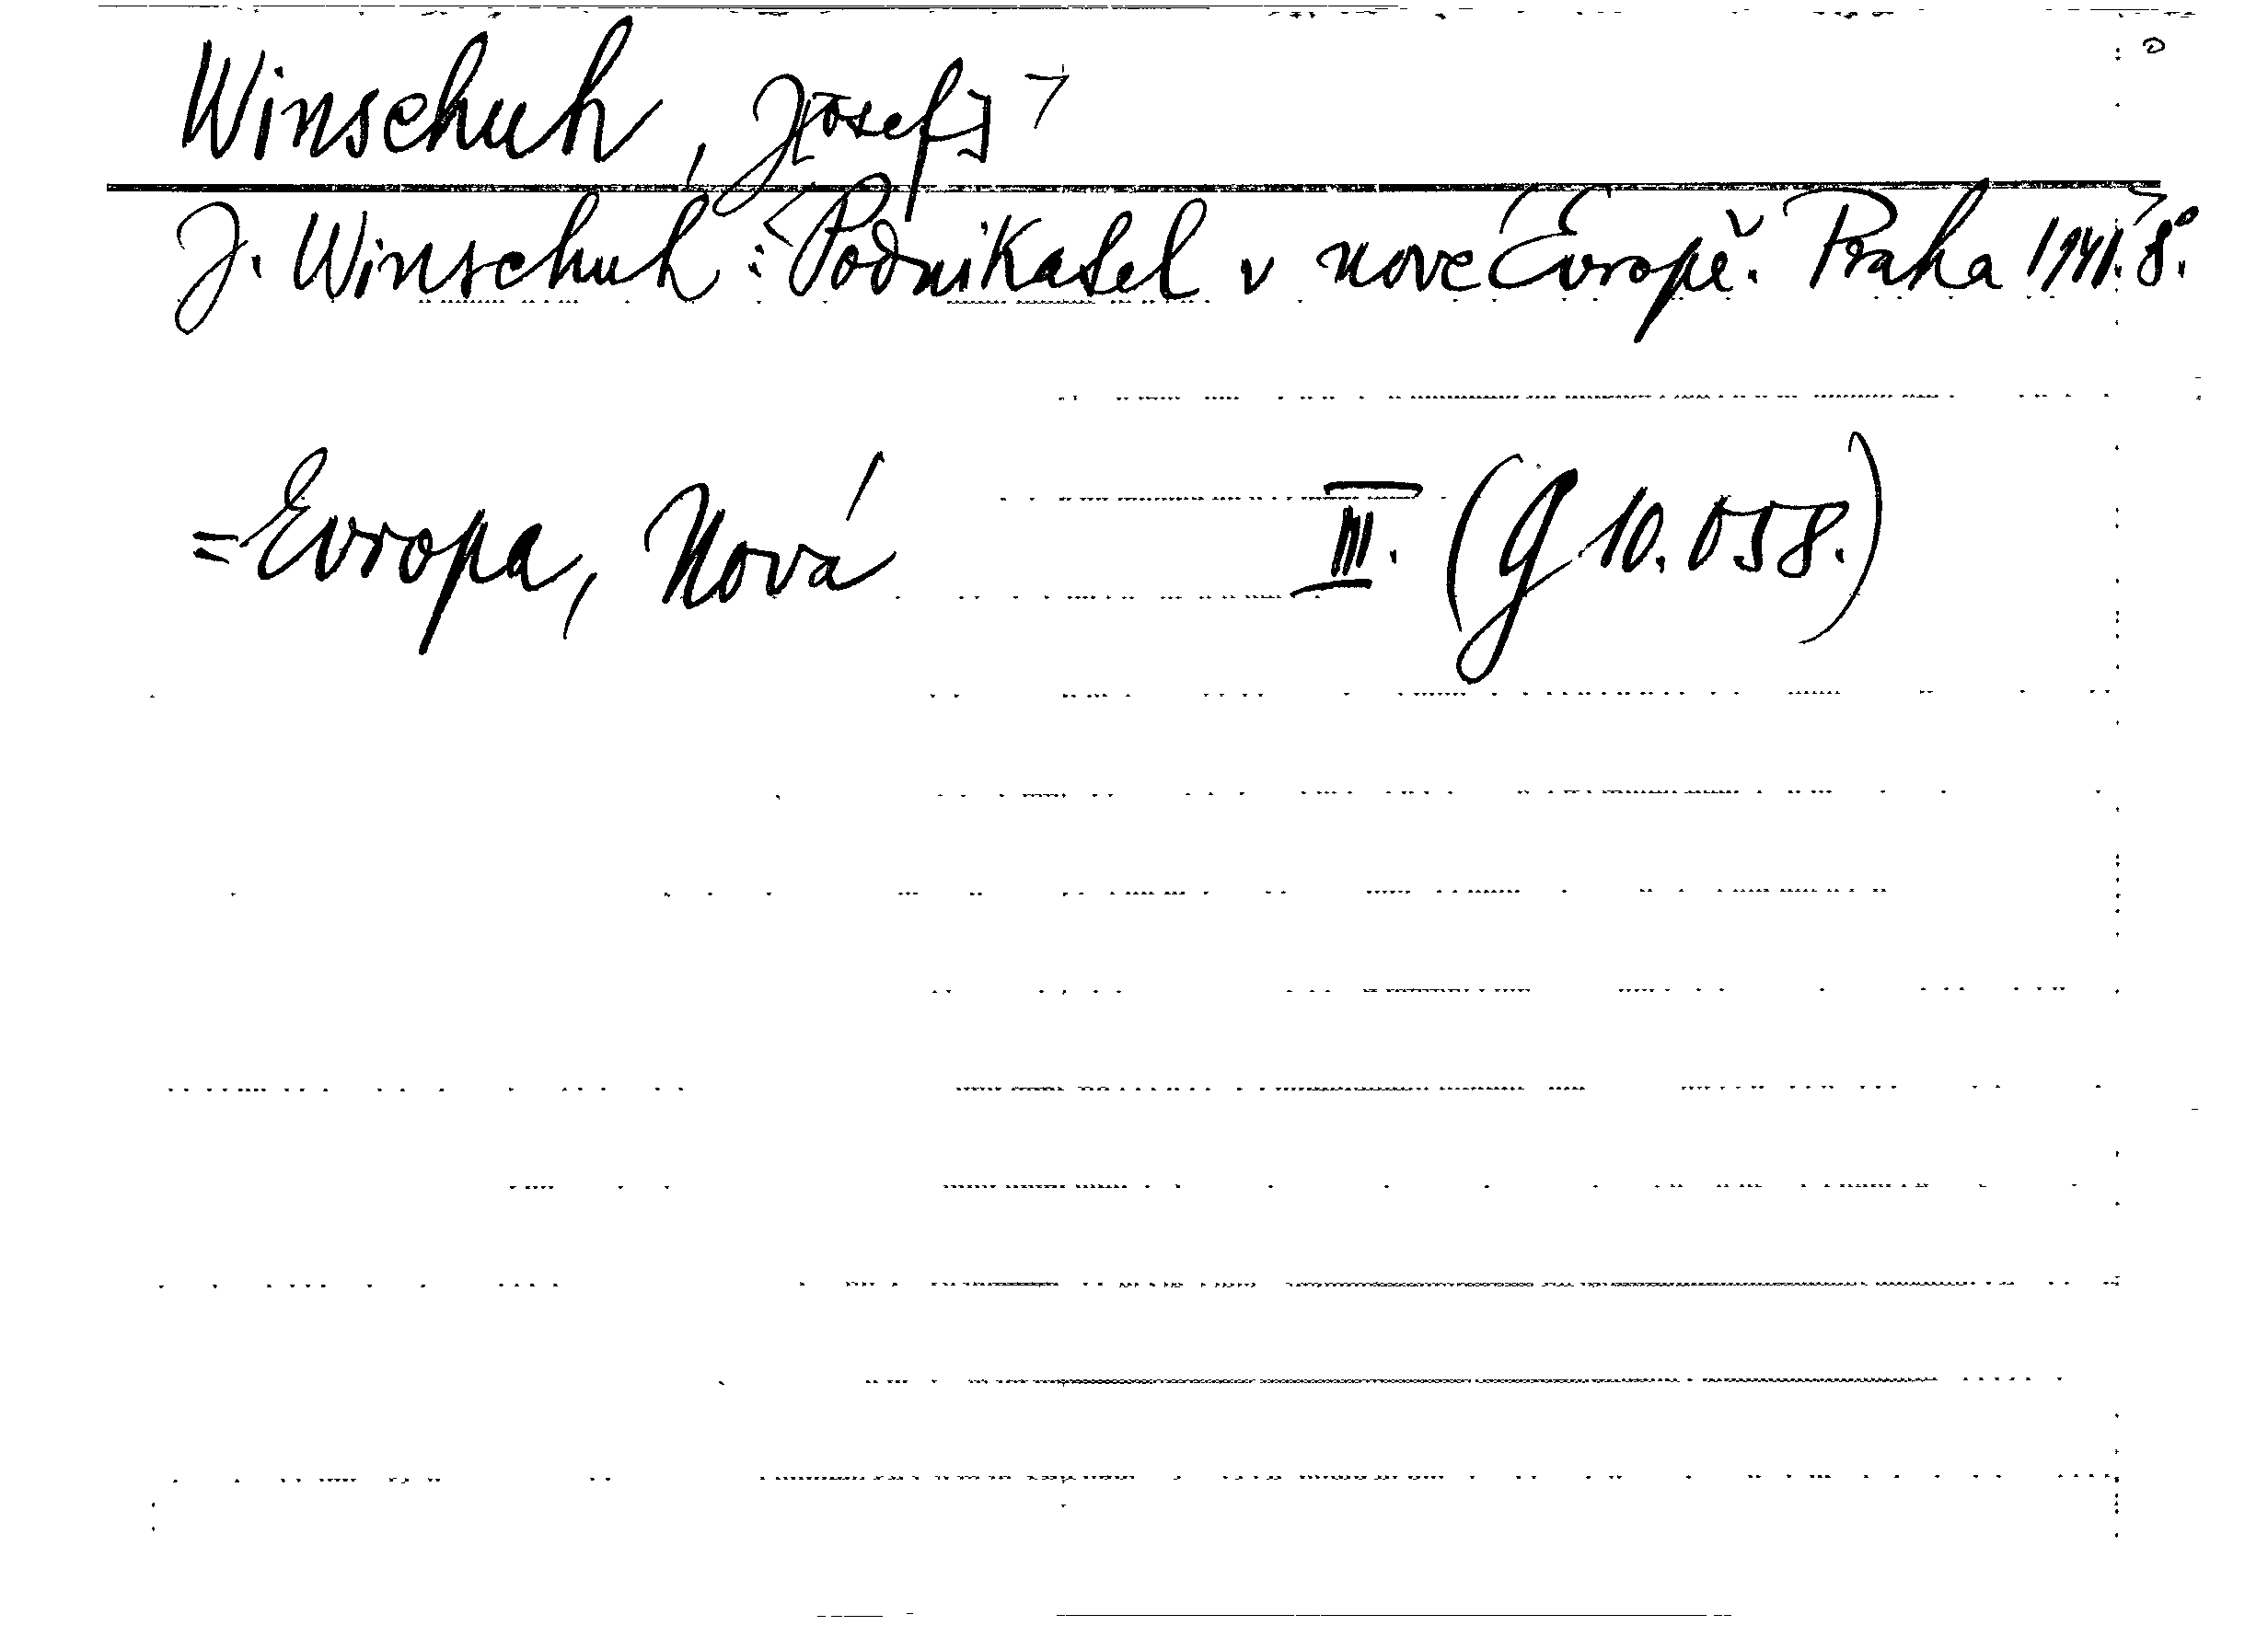 Winschuh, J[osef]
J. Winschuh: Podnikatel v nové Evropě. Praha 1941. 8°.
=Evropa, Nová III. (G 10.058.)